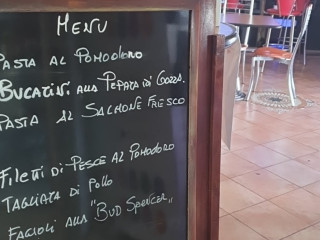 MENU
PASTA AL POMODORO
BUCATINI ALLA PEPATA DI COZZE
PASTA AL SALMONE FRESCO
FILETTI DI PESCE AL POMODORO
TAGLIATA DI POLLO
FAGIOLI ALLA "BUD SPENCER"